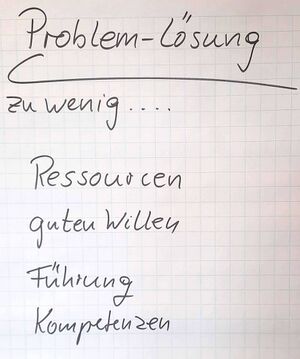 Problem-Lösung
zu wenig....
Ressourcen
guten Willen
Führung
Kompetenzen